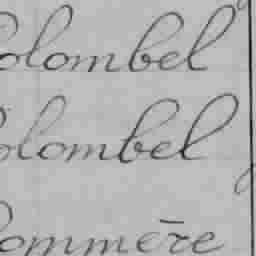 olombel
olombel
ommēre